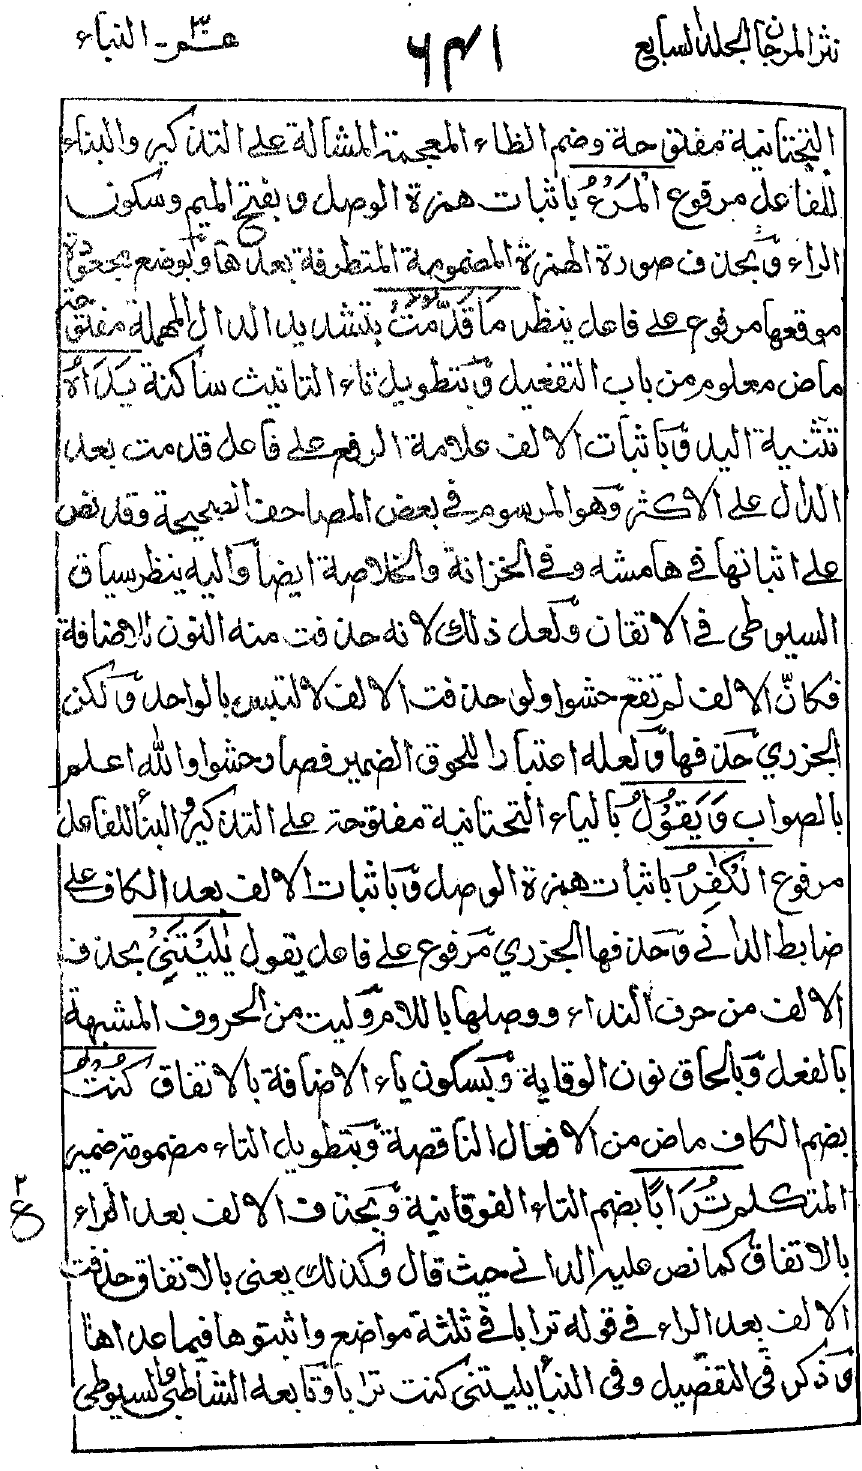 نثر المرجان الجلد السابع ٦٨١ عمّ ٣٠ - النباء
التحتانية مفتوحة وضم الظاء المعجمة المشالة على التذكير والبناء
للفاعل مرفوع الْمَرْءُ باثبات همزة الوصل و بفتح الميم وسكون
الراء وبحذف صورة الهمزة المضمومة المتطرفة بعدها وبوضع مجعودة
موقعها مرفوع على فاعل ينظر مَا قَدَّمَتْ بتشديد الدال المهملة مفتوحة
ماض معلوم من باب التفعيل وبتطويل تاء التانيث ساكنة يَدَاهُ
تثنية اليد وباثبات الالف علامة الرفع على فاعل قدمت بعد
الدال على الاكثر وهو المرسوم في بعض المصاحف الصحيحة وقد نص
على اثباتها في هامشه وفي الخزانة والخلاصة ايضا واليه ينظر سياق
السيوطي في الاتقان ولعل ذلك لانه حذفت منه النون بالاضافة
فكانّ الالف لم تقع حشوا ولو حذفت الالف لالتبس بالواحد ولكن
الجزري حذفها ولعله اعتبارا للحوق الضمير فصار حشوا والله اعلم
بالصواب وَيَقُوْلُ بالياء التحتانية مفتوحة على التذكير والبناء للفاعل
مرفوع الْكٰفِرُ باثبات همزة الوصل وباثبات الالف بعد الكاف على
ضابط الداني وحذفها الجزري مرفوع على فاعل يقول يٰلَيْتَنِيْ بحذف
الالف من حرف النداء ووصلها باللام وليت من الحروف المشبهة
بالفعل وبالحاق نون الوقاية وبسكون ياء الاضافة بالاتفاق كُنْتُ
بضم الكاف ماض من الافعال الناقصة وبتطويل التاء مضمومة ضمير
المتكلم تُرٰابًا بضم التاء الفوقانية وبحذف الالف بعد الراء
بالاتفاق كما نص عليه الداني حيث قال وكذلك يعنى بالاتفاق حذفت
الالف بعد الراء في قوله ترابا في ثلثة مواضع واثبتوها فيما عداها
وذكر في التفصيل وفي النبأ يليتنى كنت ترابا وتابعه الشاطبي والسيوطي
٢
ع